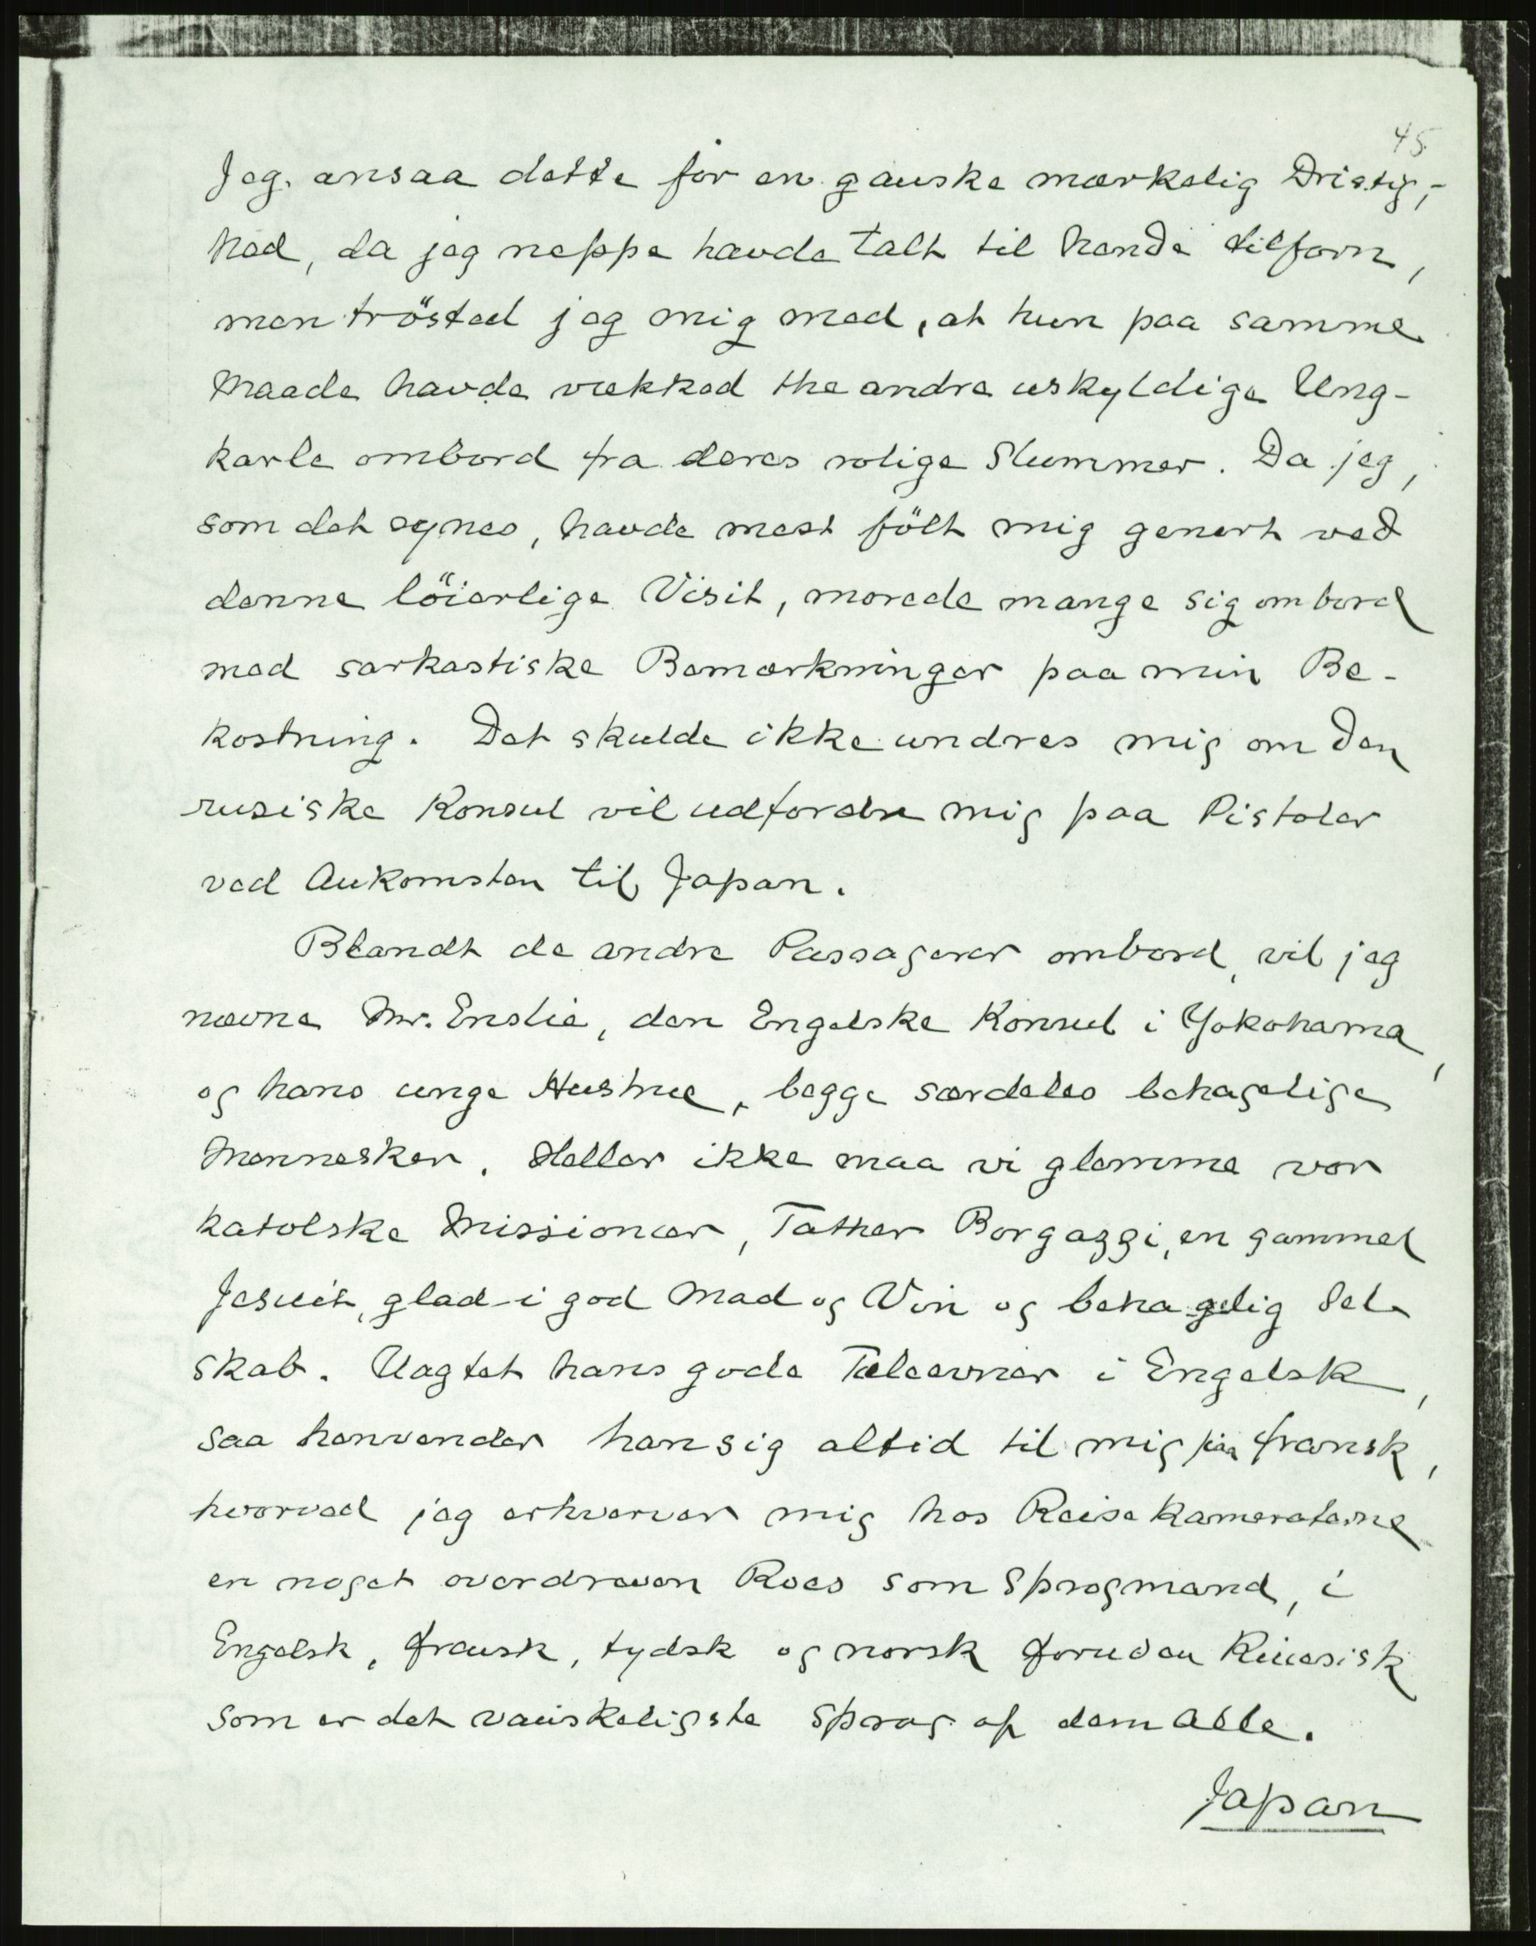 45
Jeg ansaa dette för en ganske mærkelig Dristig-
hed, da jeg neppe havde talt til hende tilforn,
men trösted jeg mig med, at hun paa samme
Maade havde vækked the andre uskyldige Ung-
karle ombord fra deres rolige Slummer. Da jeg,
som det synes, havde mest fölt mig genert ved
denne löierlige Visit, morede mange sig ombord
med sarkastiske Bemærkninger paa min Be-
kostning. Det skulde ikke undres mig om den
rusiske Konsul vil udfordre mig paa Pistoler
ved Ankomsten til Japan.
Blandt de andre Passagerer ombord, vil jeg
nævne Mr. Enslie, den Engelske Konsul i Yokohama,
og hans unge Hustrue, begge særdeles behagelige
Mennesker. Heller ikke maa vi glemme vor
katolske Missionær, Father Borgazzi, en gammel
Jesuit, glad i god Mad og Vin og behagelig Sel-
skab. Uagtet hans gode Taleevner i Engelsk,
saa henvender han sig altid til mig paa fransk,
hvorved jeg erhverver mig hos Reisekameraterne
en noget overdreven Roes som Sprogmand, i
Engelsk, fransk, tydsk og norsk foruden Kinesisk
som er det vanskeligste Sprog af dem alle.
Japan